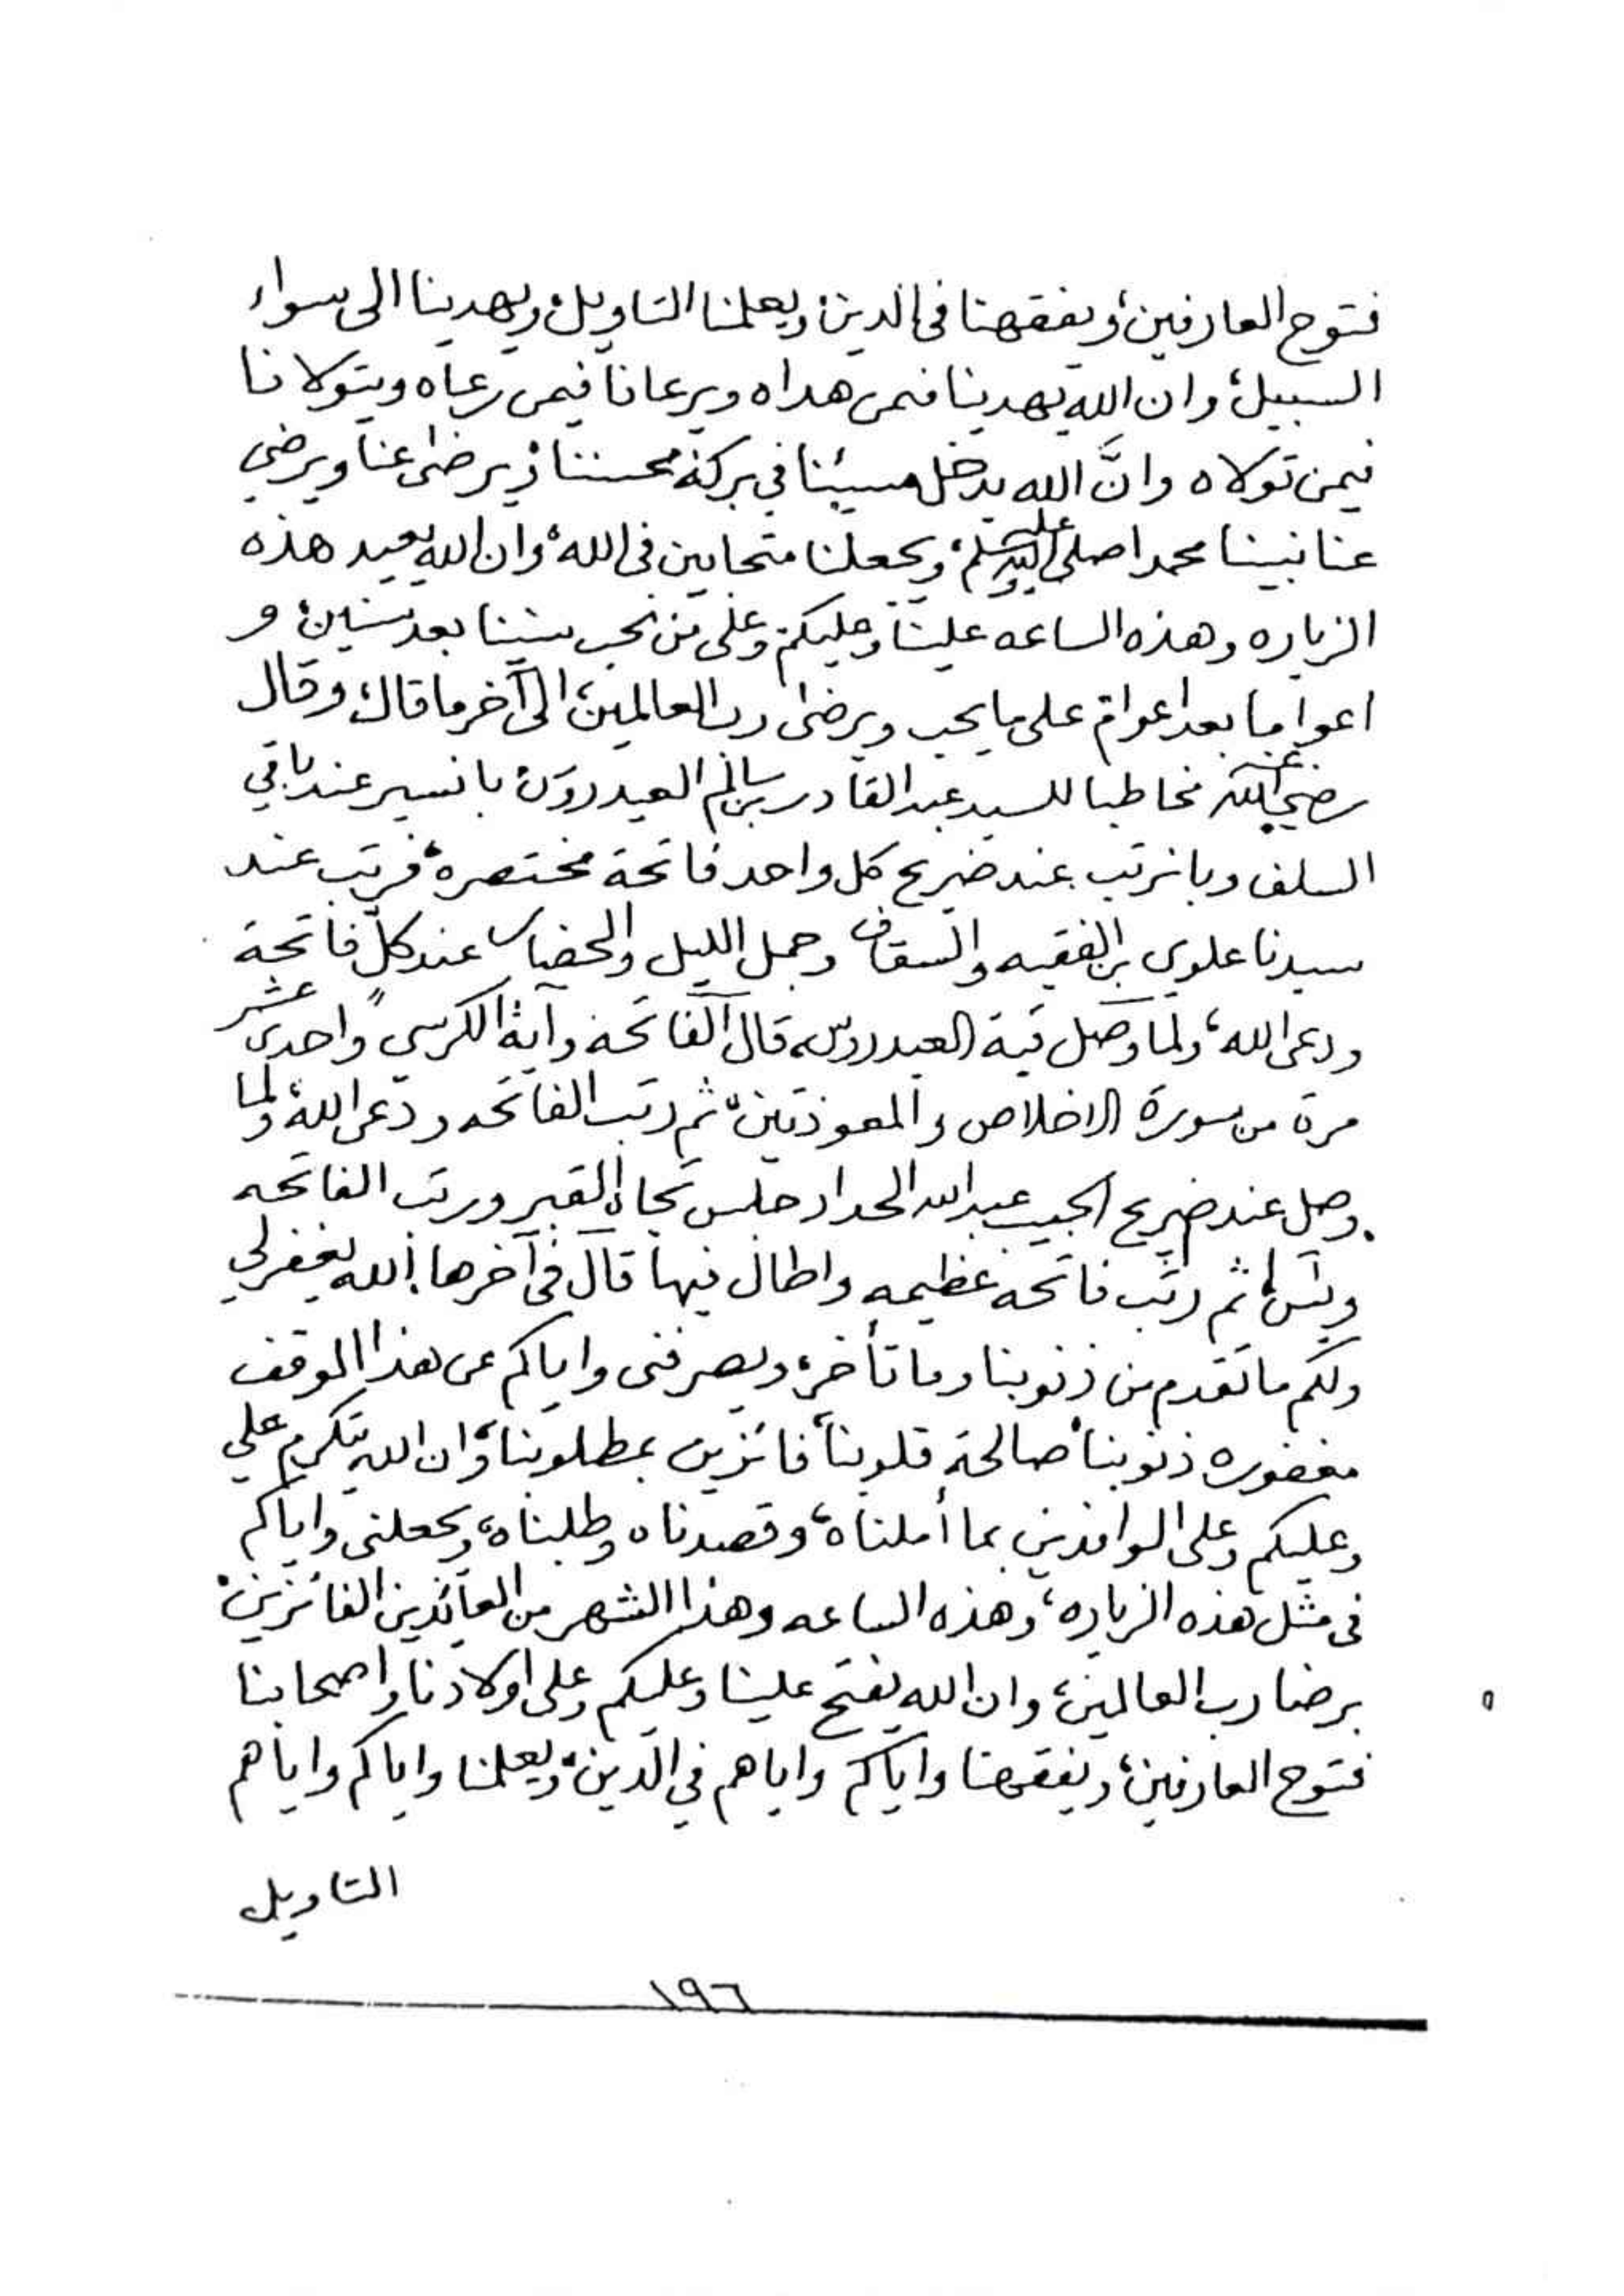 فتوح العارفين، ويفقهنا في الدين، ويعلمنا التاويل، ويهدينا الى سواء
السبيل، وان الله يهدينا فيمن هداه ويرعانا فيمن رعاه ويتولانا
فيمن تولاه وانَّ الله يدخل مسيئنا في بركة محسننا، ويرضى عنا ويرضي
عنا نبينا محمدا صلى الله عليه وسلم، ويجعلنا متحابين في الله، وان الله يعيد هذه
الزياره وهذه الساعه علينا وعليكم وعلى من نحب سنينا بعد سنين، و
اعواما بعد اعوام على ما يحب ويرضى رب العالمين، الى آخر ما قال، وقال
رضي الله عنه مخاطبا للسيد عبد القادر بن سالم العيدروس، با نسير عند باقي
السلف وبا نرتب عند ضريح كل واحد فاتحة مختصره، فرتب عند
سيدنا علوي بن الفقيه والسقاف وجمل الليل والحضار عند كلّ فاتحة
ودعى الله، ولما وصل قبة العيدروس، قال الفاتحة وآية الكرسي واحدى عشر
مرة من سورة الاخلاص والمعوذتين، ثم رتب الفاتحه ودعى الله، ولما
وصل عند ضريح الحبيب عبدالله الحداد جلس تجاه القبر ورتب الفاتحه
ويس، ثم رتب فاتحه عظيمه واطال فيها قال في آخرها: الله يغفر لي
ولكم ما تقدم من ذنوبنا وما تأخر، ويصرفنى واياكم عن هذا الموقف
مغفوره ذنوبنا، صالحة قلوبنا، فائزين بمطلوبنا، وان الله يتكرم علي
وعليكم وعلى الوافدين بما أملناه، وقصدناه وطلبناه، ويجعلنى واياكم
في مثل هذه الزياره، وهذه الساعه وهذا الشهر من العائدين الفائزين،
برضا رب العالمين، وان الله يفتح علينا وعليكم وعلى اولادنا واصحابنا
فتوح العارفين، ويفقهنا واياكم واياهم في الدين، ويعلمنا واياكم واياهم
التاويل
١٩٦